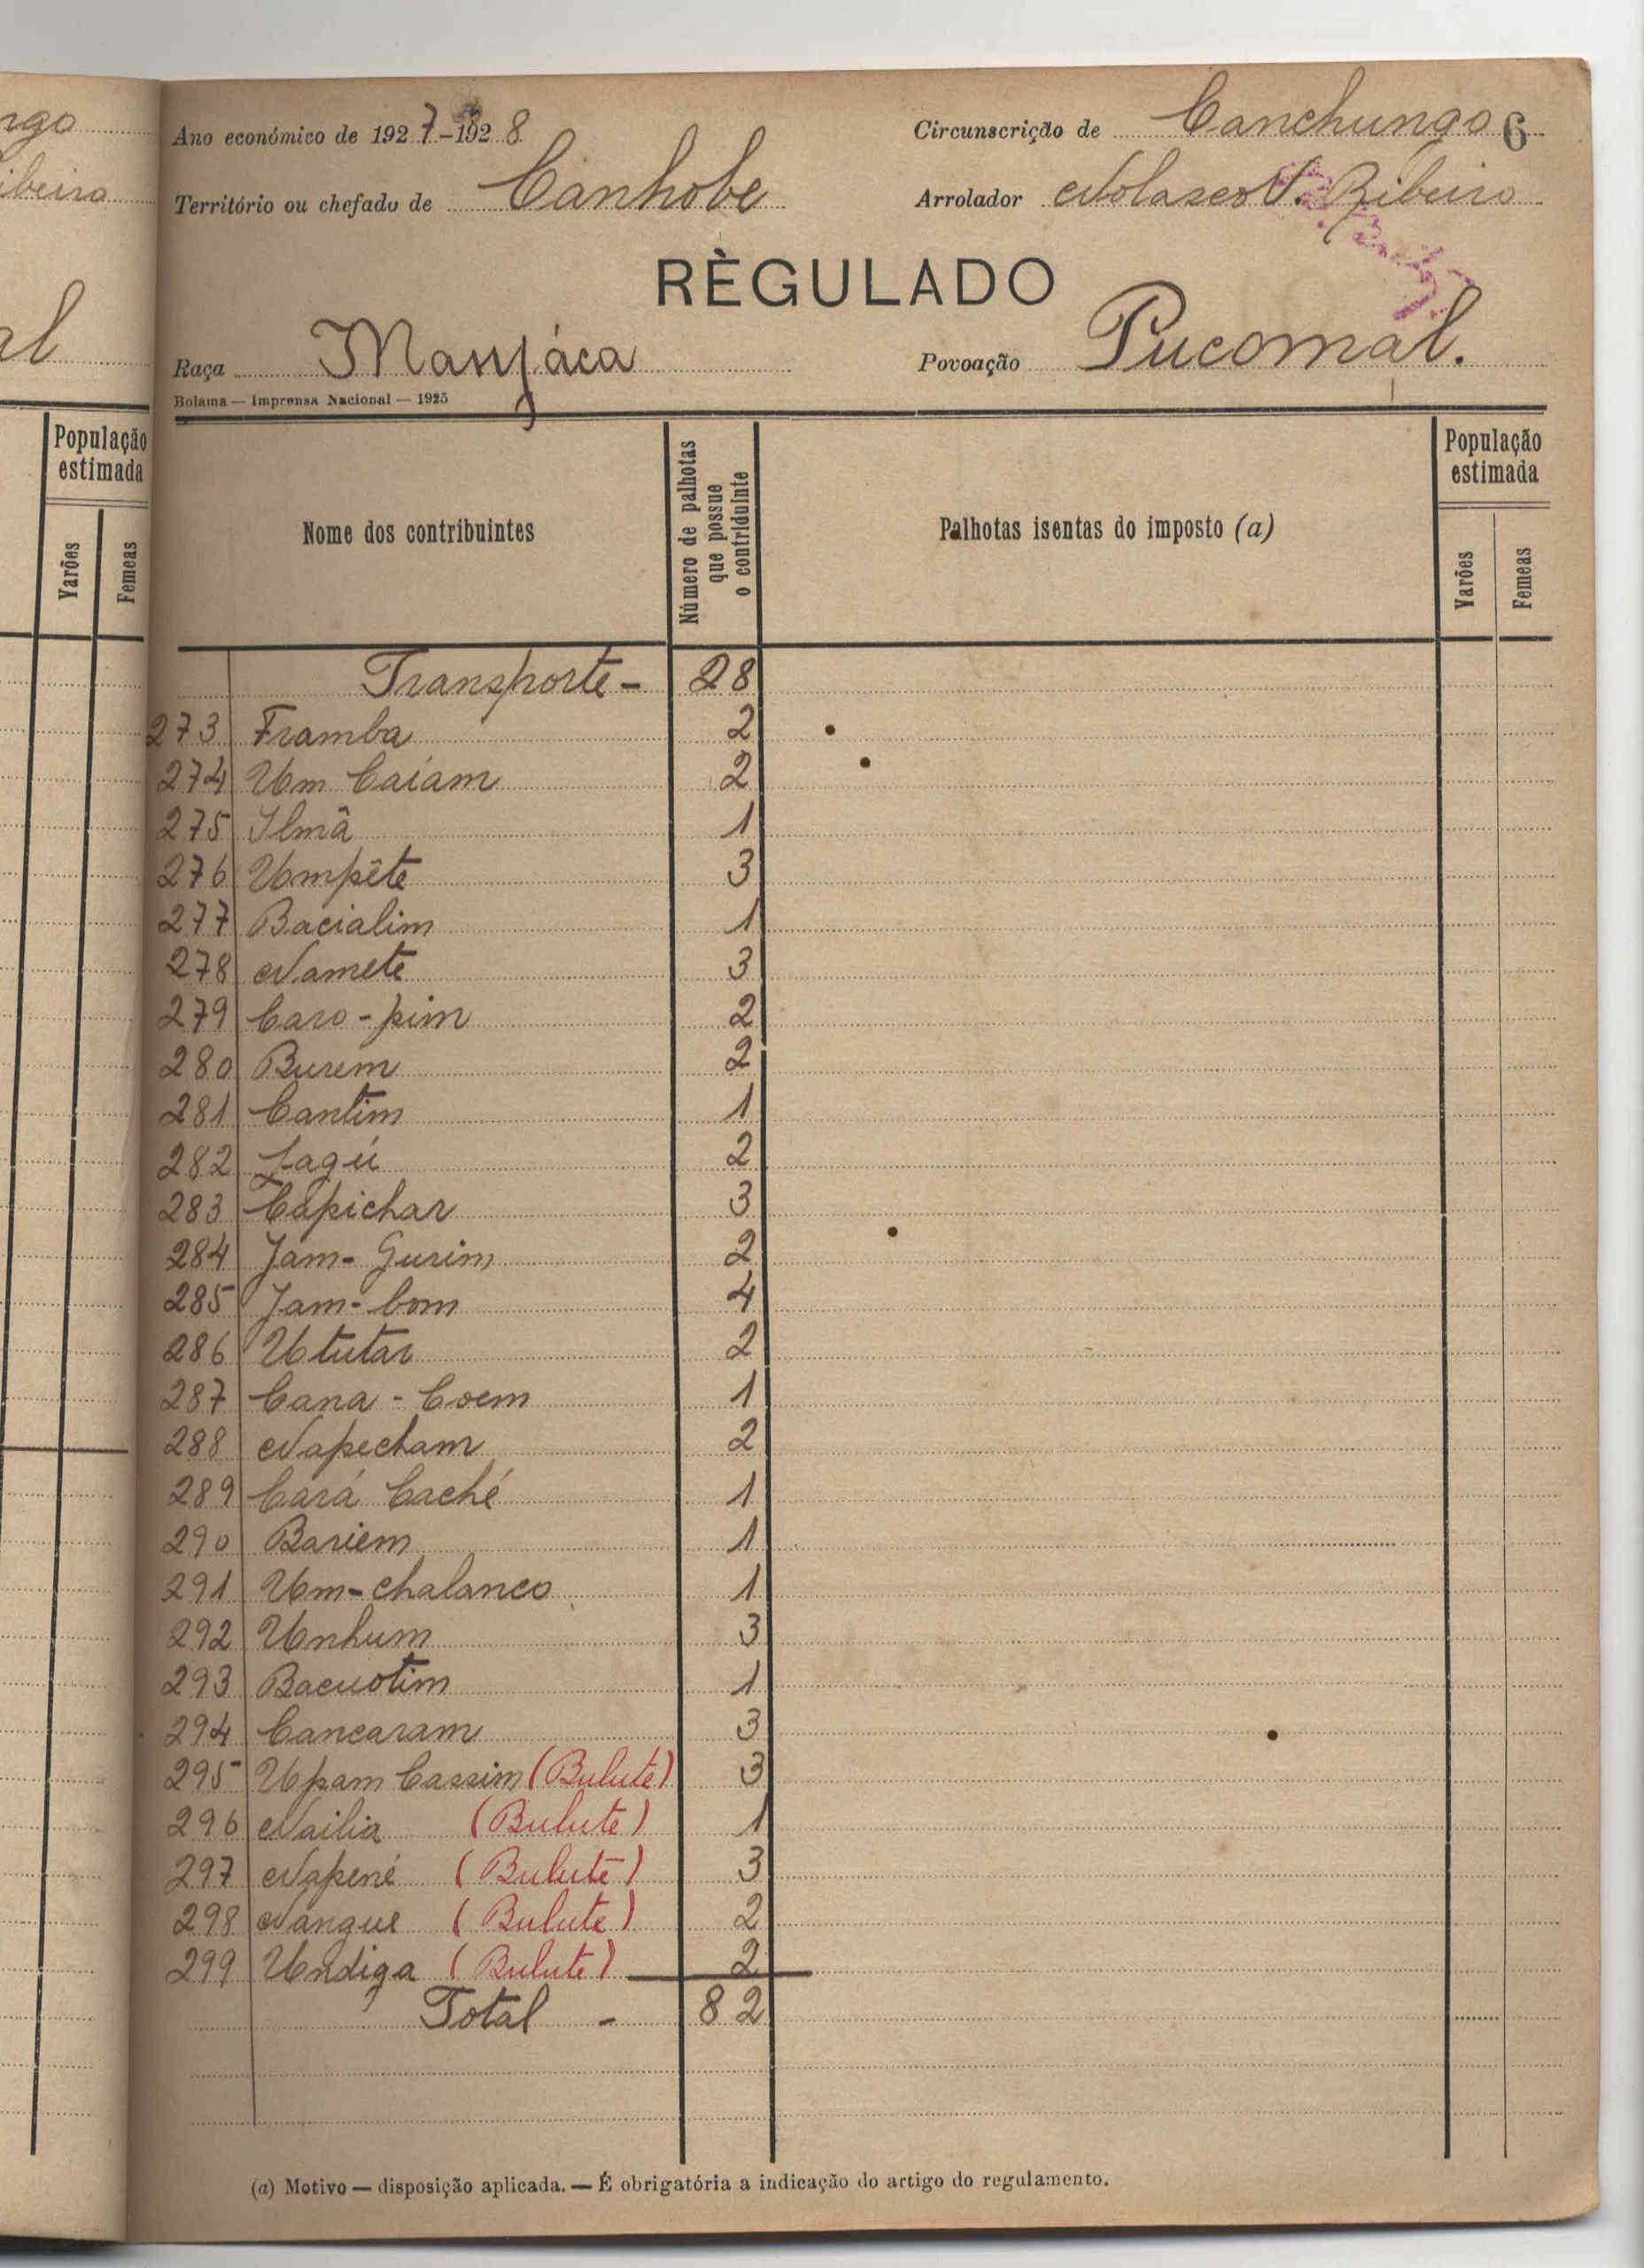 ngo
ibeiro
al
População
estimada
Varões
Femeas
Ano económico de 1927-1928
Circunscrição de Canchungo 6
Território ou chefado de Canhobe
Arrolador Nolasco V. Ribeiro
RÈGULADO
Raça Manjáca
Povoação Pucomal.
Bolama — Imprensa Nacional — 1925
Nome dos contribuintes
Número de palhotas
que possue
o contriduinte
Palhotas isentas do imposto (a)
População
estimada
Varões
Femeas
Transporte - 28
273 Framba 2
274 Um Caíam 2
275 Ilmã 1
276 Umpête 3
277 Bacialim 1
278 Namete 3
279 Caro-pim 2
280 Burem 2
281 Cantim 1
282 Lagú 2
283 Capichar 3
284 Jam-Gurim 2
285 Jam-bom 4
286 Ututar 2
287 Cana-Coem 1
288 Napecham 2
289 Cará Caché 1
290 Bariem 1
291 Um-chalanco 1
292 Unhum 3
293 Bacuotim 1
294 Cancaram 3
295 Upam Cassim (Bulute) 3
296 Nailia (Bulute) 1
297 Napené (Bulute) 3
298 Nangue (Bulute) 2
299 Undiga (Bulute) 2
Total - 82
(a) Motivo — disposição aplicada. — É obrigatória a indicação do artigo do regulamento.